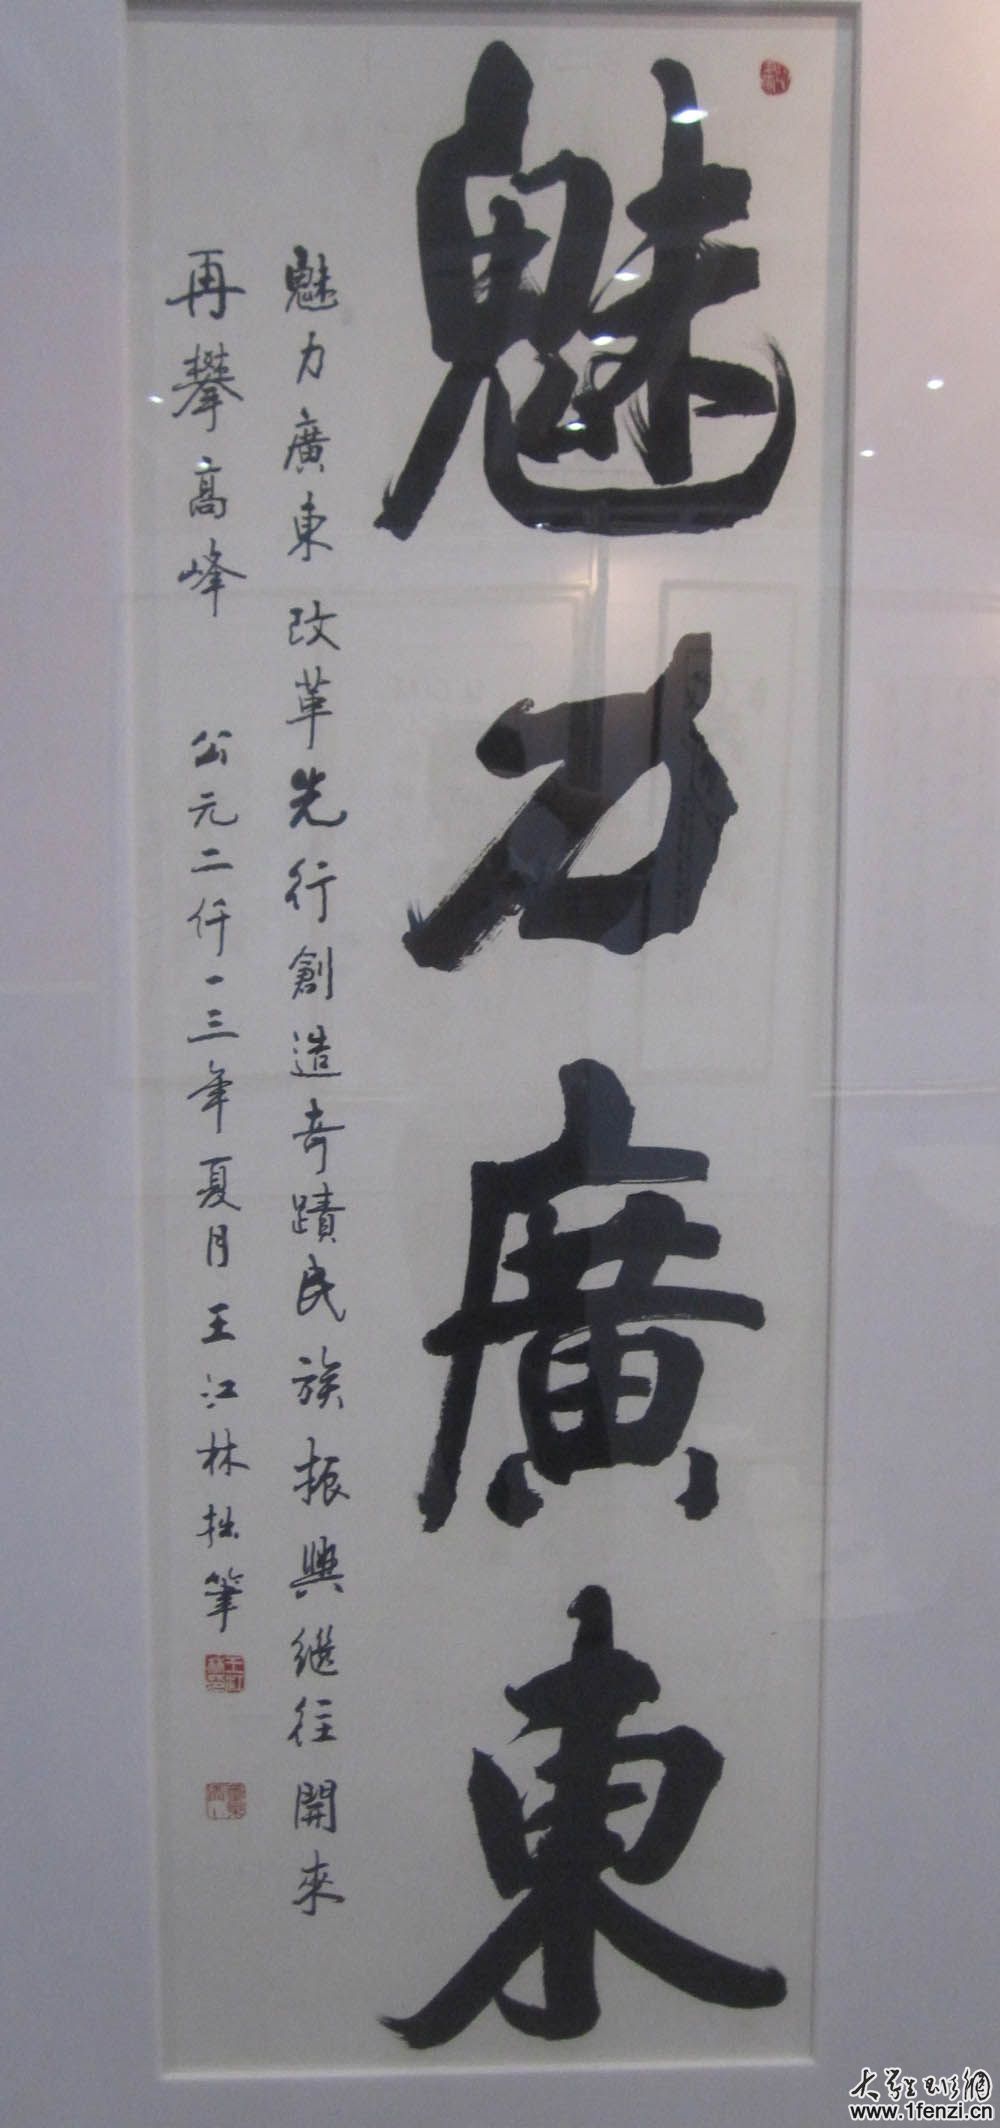 魅力廣東
魅力廣東改革先行創造奇蹟民族振興继往開來
再攀高峰 公元二仟一三年夏月王江林拙筆
王江林印
www.1fenzi.cn